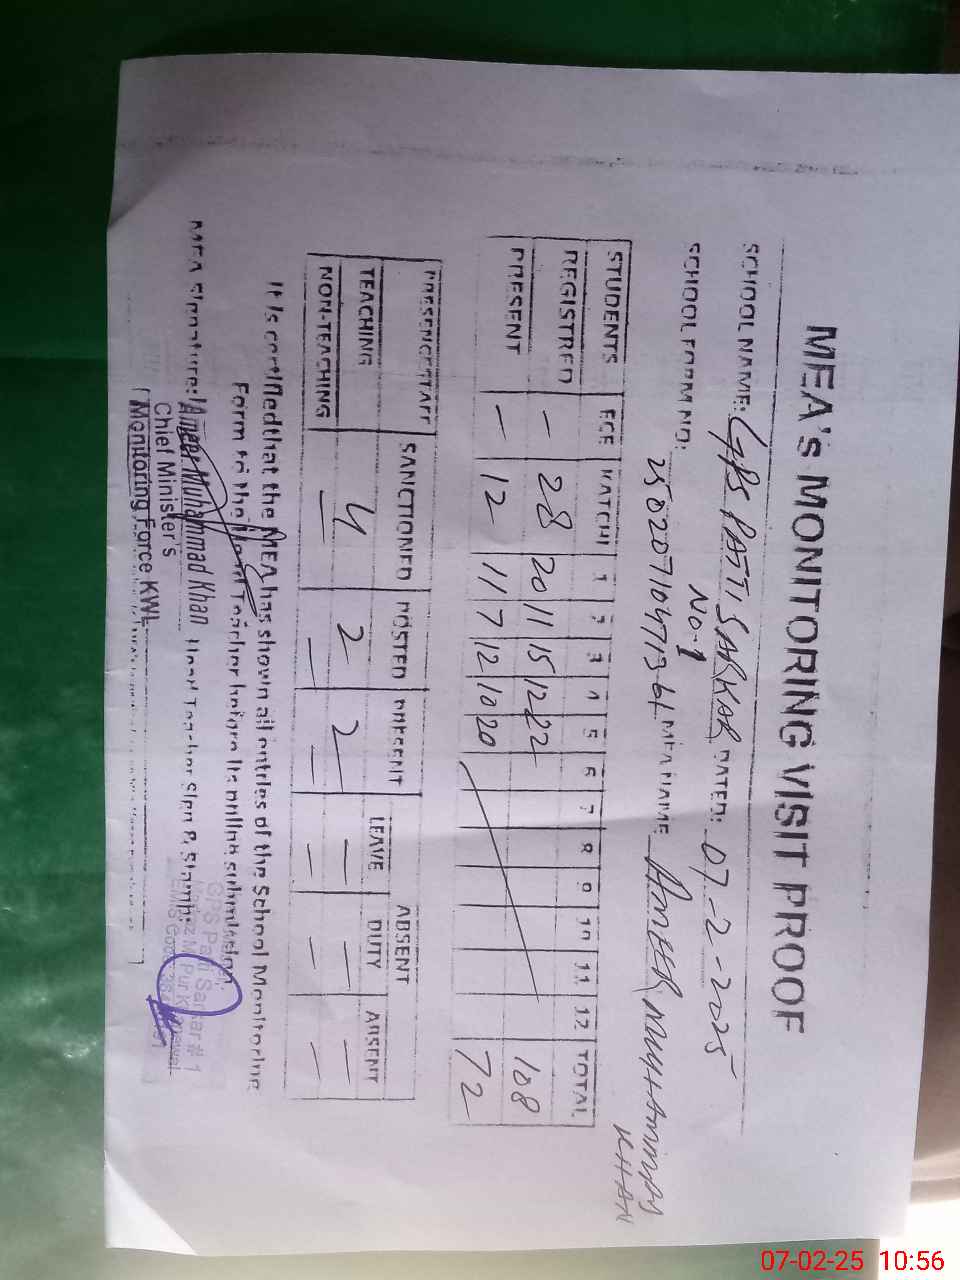 MEA's MONITORING VISIT PROOF
SCHOOL NAME: GPS PATTI SARKAR No-1 DATED: 07-2-2025
SCHOOL FORM NO: MEA NAME AMEER MUHAMMAD KHAN
STUDENTS ECE KATCHI 1 2 3 4 5 6 7 8 9 10 11 12 TOTAL
REGISTRED — 28 20 11 15 12 22 108
PRESENT — 12 11 7 12 10 20 72
PRESENCE STAFF SANCTIONED POSTED PRESENT ABSENT
LEAVE DUTY ABSENT
TEACHING 4 2 2 — — —
NON-TEACHING — — — — — —
It is certified that the MEA has shown all entries of the School Monitoring
Form to the Head Teacher before its online submission.
MEA Signature: Ameer Muhammad Khan Head Teacher Sign & Stamp:
Chief Minister's
Monitoring Force KWL
GPS Patti Sarkar # 1
07-02-25 10:56